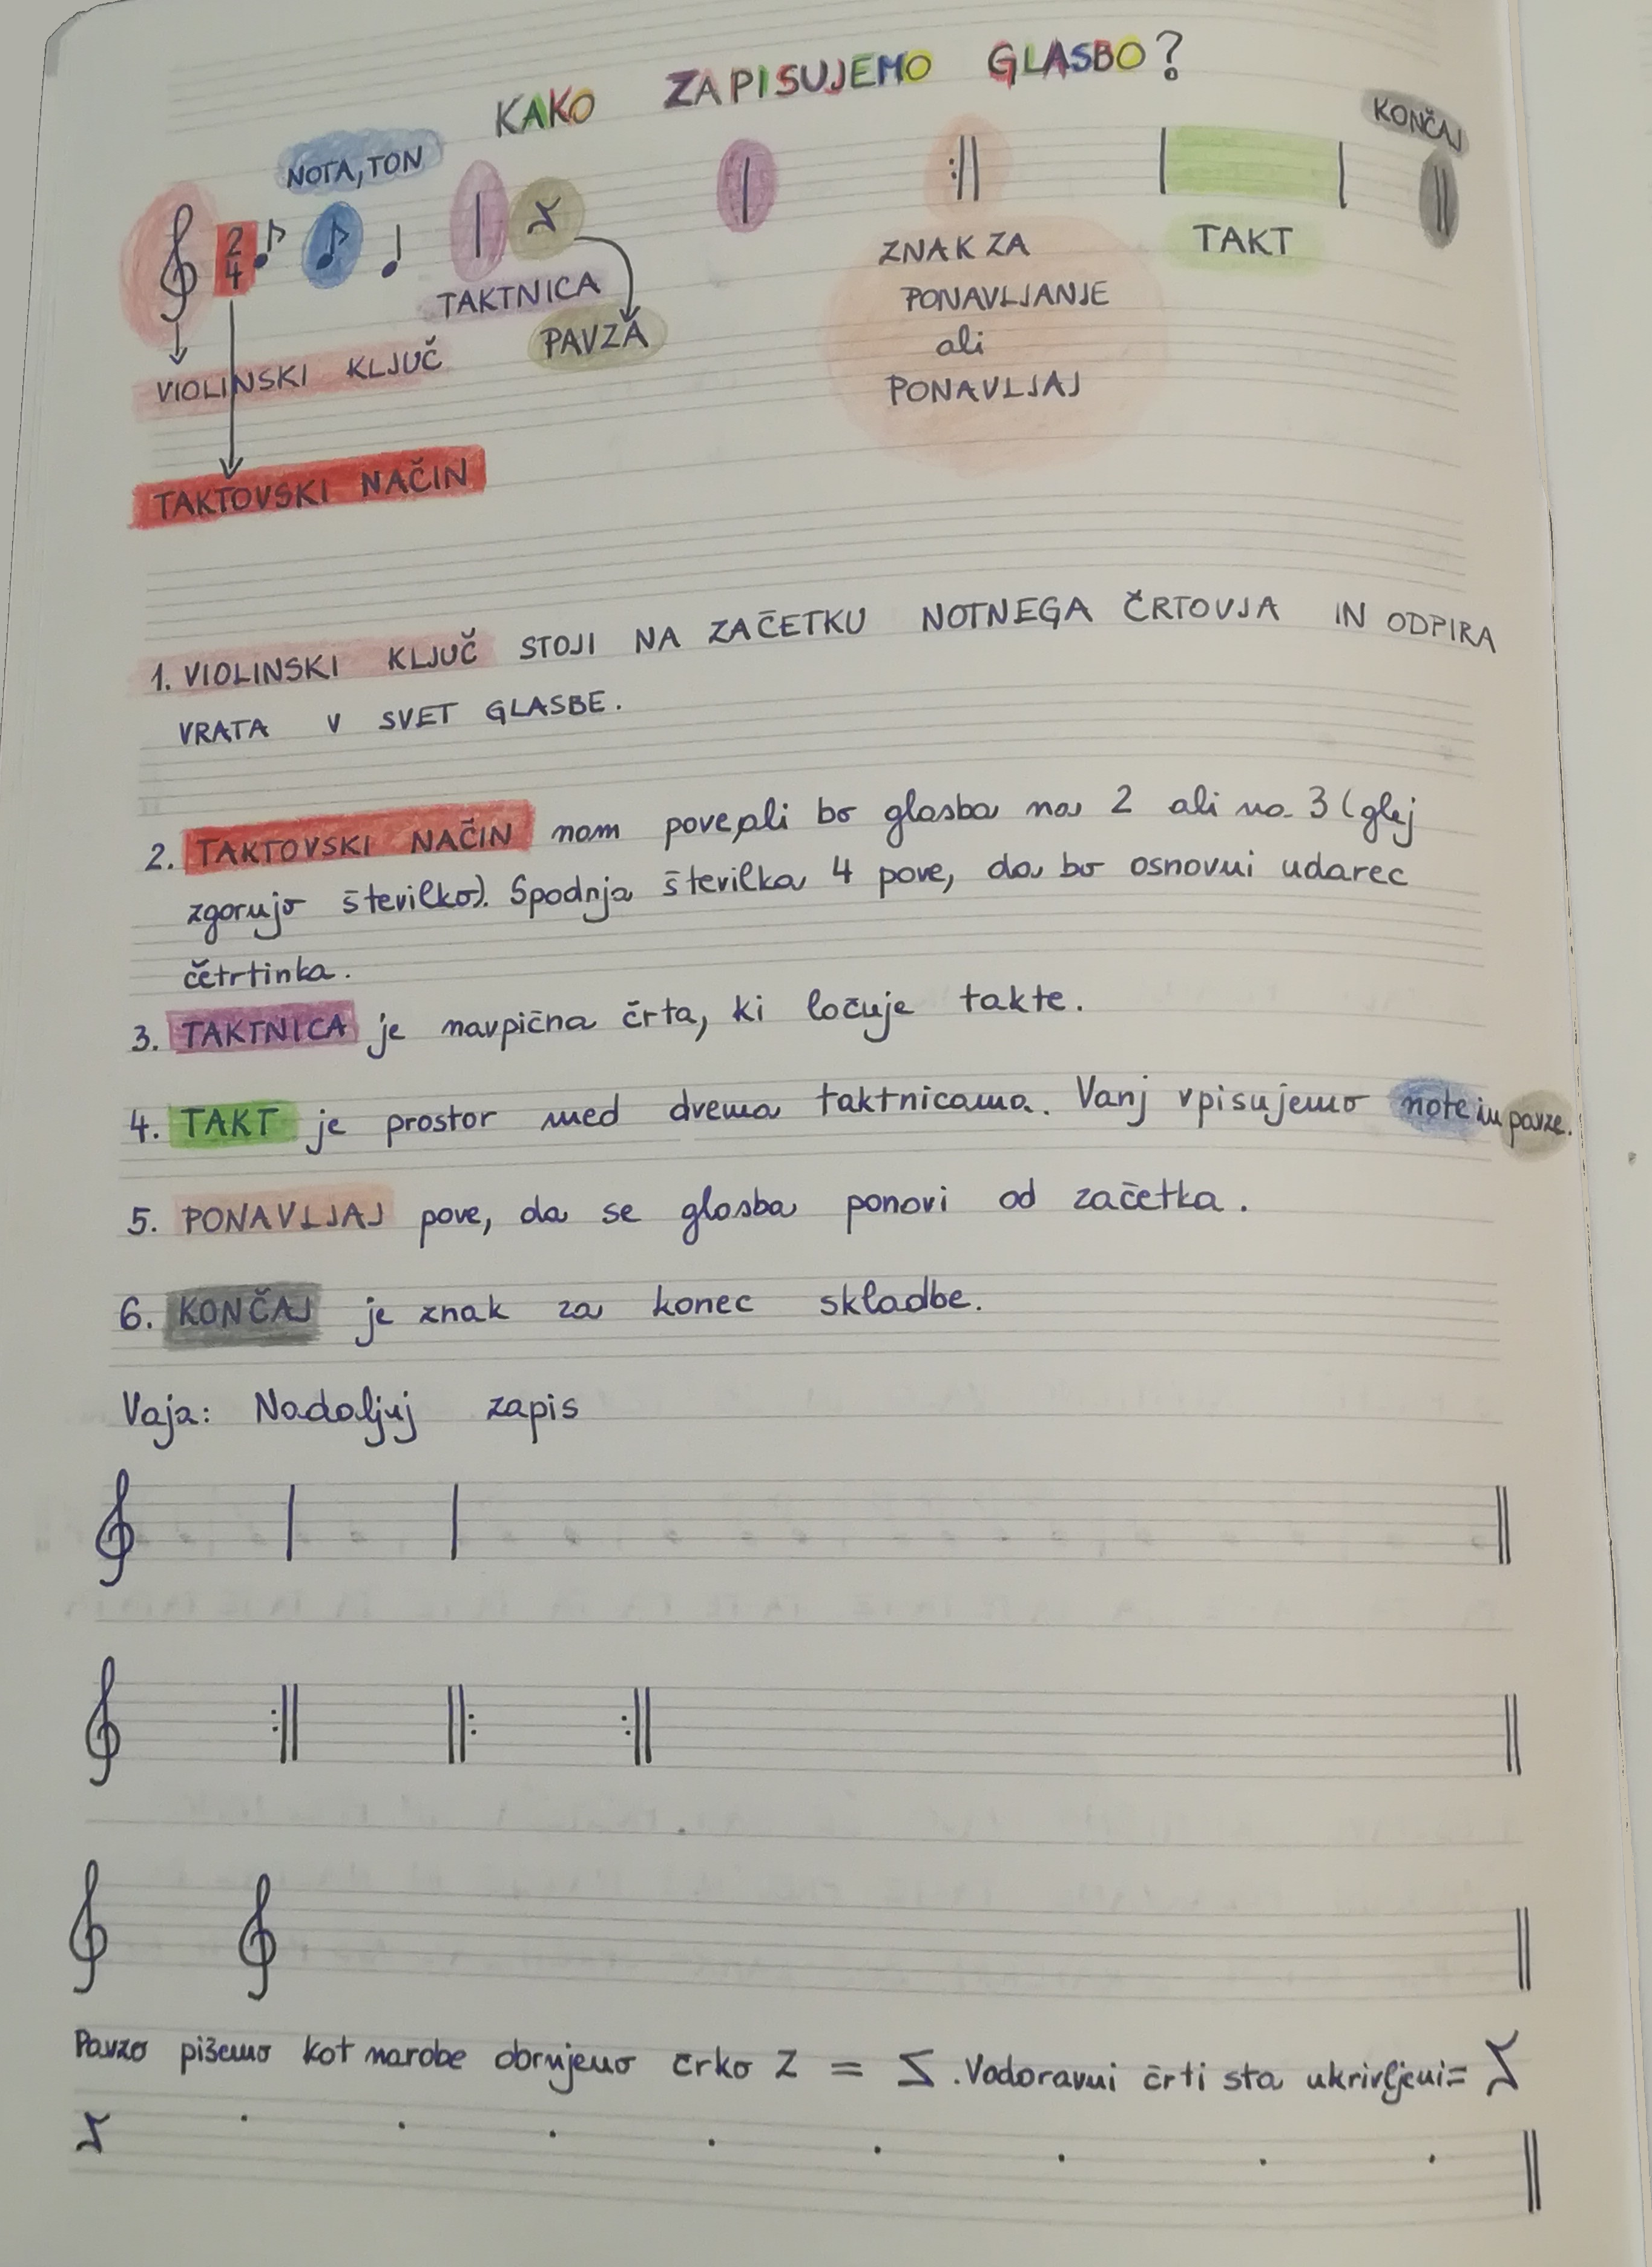 KAKO ZAPISUJEMO GLASBO?
KONČAJ
NOTA, TON
2
4
TAKTNICA
PAVZA
ZNAK ZA
PONAVLJANJE
ali
PONAVLJAJ
TAKT
VIOLINSKI KLJUČ
TAKTOVSKI NAČIN
1. VIOLINSKI KLJUČ STOJI NA ZAČETKU NOTNEGA ČRTOVJA IN ODPIRA
VRATA V SVET GLASBE.
2. TAKTOVSKI NAČIN nam pove, ali bo glasba na 2 ali na 3 (glej
zgornjo številko). Spodnja številka 4 pove, da bo osnovni udarec
četrtinka.
3. TAKTNICA je navpična črta, ki ločuje takte.
4. TAKT je prostor med dvema taktnicama. Vanj vpisujemo note in pavze.
5. PONAVLJAJ pove, da se glasba ponovi od začetka.
6. KONČAJ je znak za konec skladbe.
Vaja: Nadaljuj zapis
Pavzo pišemo kot narobe obrnjeno črko Z = . Vodoravni črti sta ukrivljeni =